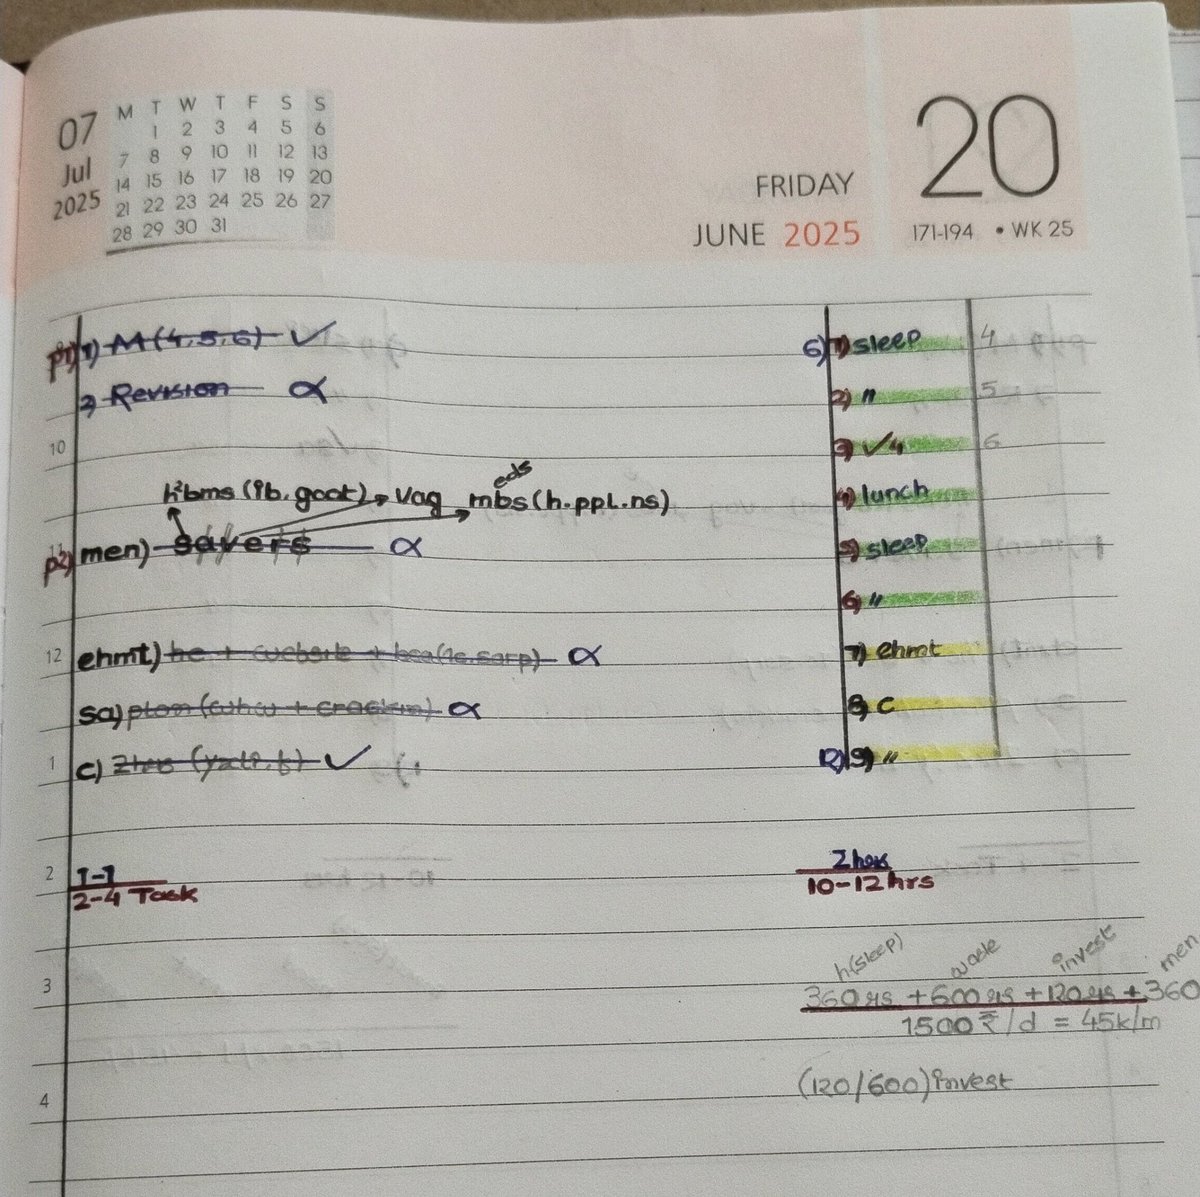 07
Jul
2025
M T W T F S S
1 2 3 4 5 6
7 8 9 10 11 12 13
14 15 16 17 18 19 20
21 22 23 24 25 26 27
28 29 30 31
FRIDAY
JUNE 2025
20
171-194 • WK 25
p1) 1) M(4,5,6) ✓
2) Revision α
10
h²bms (ib.goat) → vag mbs(h.ppl.ns)
eds
p2) men) savers α
12 ehmt) he + website + α
sa) α
1 c) ✓
2 1-1
2-4 Task
3
4
6) 1) sleep 4
2) " 5
3) ✓4 6
4) lunch
5) sleep
6) "
7) ehmt
8) c
12) 9) "
2 hrs
10-12 hrs
h(sleep) invest men
+ + + 360
1500 ₹/d = 45k/m
(120/600) invest